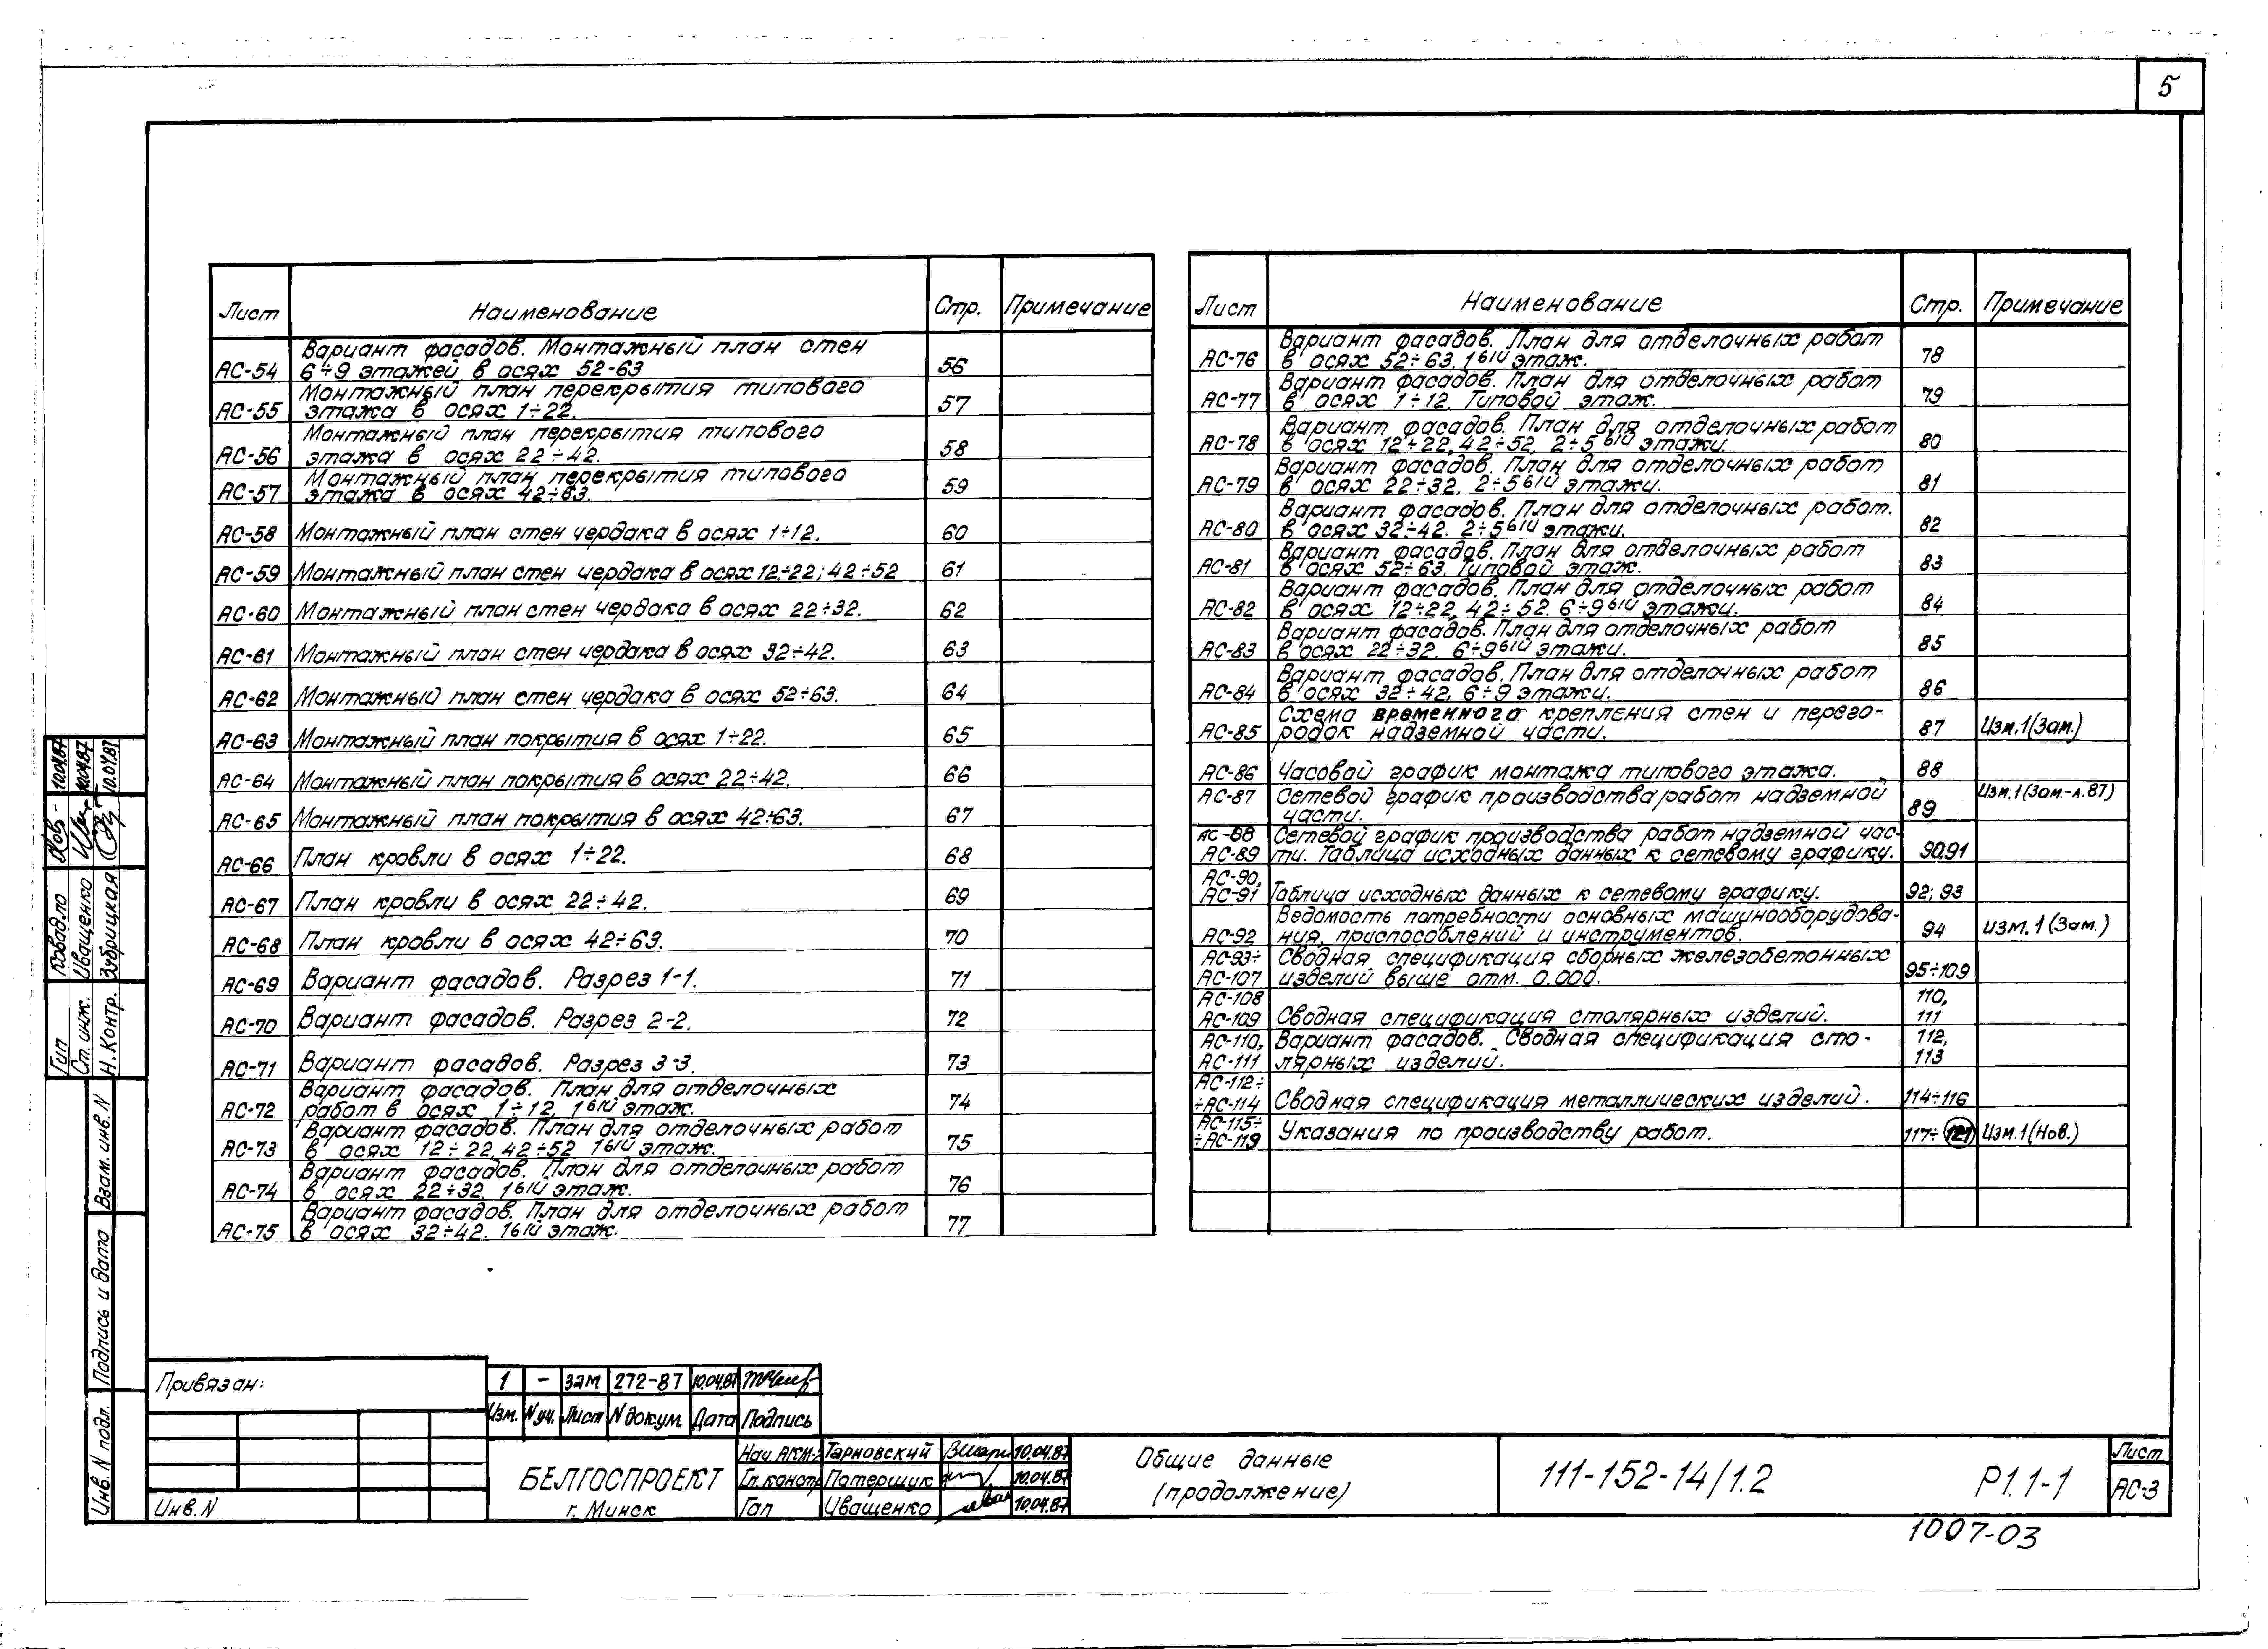 5
Лист Наименование Стр. Примечание
АС-54 Вариант фасадов. Монтажный план стен
6÷9 этажей в осях 52-63 56
АС-55 Монтажный план перекрытия типового
этажа в осях 1÷22. 57
АС-56 Монтажный план перекрытия типового
этажа в осях 22÷42. 58
АС-57 Монтажный план перекрытия типового
этажа в осях 42÷63. 59
АС-58 Монтажный план стен чердака в осях 1÷12. 60
АС-59 Монтажный план стен чердака в осях 12÷22; 42÷52 61
АС-60 Монтажный план стен чердака в осях 22÷32. 62
АС-61 Монтажный план стен чердака в осях 32÷42. 63
АС-62 Монтажный план стен чердака в осях 52÷63. 64
АС-63 Монтажный план покрытия в осях 1÷22. 65
АС-64 Монтажный план покрытия в осях 22÷42. 66
АС-65 Монтажный план покрытия в осях 42÷63. 67
АС-66 План кровли в осях 1÷22. 68
АС-67 План кровли в осях 22÷42. 69
АС-68 План кровли в осях 42÷63. 70
АС-69 Вариант фасадов. Разрез 1-1. 71
АС-70 Вариант фасадов. Разрез 2-2. 72
АС-71 Вариант фасадов. Разрез 3-3. 73
АС-72 Вариант фасадов. План для отделочных
работ в осях 1÷12. 1ый этаж. 74
АС-73 Вариант фасадов. План для отделочных работ
в осях 12÷22, 42÷52 1ый этаж. 75
АС-74 Вариант фасадов. План для отделочных работ
в осях 22÷32. 1ый этаж. 76
АС-75 Вариант фасадов. План для отделочных работ
в осях 32÷42. 1ый этаж. 77
Лист Наименование Стр. Примечание
АС-76 Вариант фасадов. План для отделочных работ
в осях 52÷63. 1ый этаж. 78
АС-77 Вариант фасадов. План для отделочных работ
в осях 1÷12. Типовой этаж. 79
АС-78 Вариант фасадов. План для отделочных работ
в осях 12÷22, 42÷52. 2÷5ый этажи. 80
АС-79 Вариант фасадов. План для отделочных работ
в осях 22÷32. 2÷5ый этажи. 81
АС-80 Вариант фасадов. План для отделочных работ.
в осях 32÷42. 2÷5ый этажи. 82
АС-81 Вариант фасадов. План для отделочных работ
в осях 52÷63. Типовой этаж. 83
АС-82 Вариант фасадов. План для отделочных работ
в осях 12÷22, 42÷52. 6÷9ый этажи. 84
АС-83 Вариант фасадов. План для отделочных работ
в осях 22÷32. 6÷9ый этажи. 85
АС-84 Вариант фасадов. План для отделочных работ
в осях 32÷42, 6÷9 этажи. 86
АС-85 Схема временного крепления стен и перего-
родок надземной части. 87 Изм.1(Зам.)
АС-86 Часовой график монтажа типового этажа. 88
АС-87 Сетевой график производства работ надземной
части. 89 Изм.1(Зам.-л.87)
АС-88 Сетевой график производства работ надземной час-
АС-89 ти. Таблица исходных данных к сетевому графику. 90,91
АС-90,
АС-91 Таблица исходных данных к сетевому графику. 92; 93
АС-92 Ведомость потребности основных машинооборудова-
ния, приспособлений и инструментов. 94 изм.1(Зам.)
АС-93÷ Сводная спецификация сборных железобетонных
АС-107 изделий выше отм. 0.000. 95÷109
АС-108 110,
АС-109 Сводная спецификация столярных изделий. 111
АС-110, Вариант фасадов. Сводная спецификация сто- 112,
АС-111 лярных изделий. 113
АС-112÷
÷АС-114 Сводная спецификация металлических изделий. 114÷116
АС-115÷
÷АС-119 Указания по производству работ. 117÷121 Изм.1(Нов.)
Гип Ковадло 10.04.87
Ст. инж. Иващенко 10.04.87
Н.Контр. Зубрицкая 10.04.87
Взам. инв. N
Подпись и дата
Инв. N подл.
Привязан:
Инв. N
1 - зам 272-87 10.04.87
Изм. N уч. Лист N докум. Дата Подпись
БЕЛГОСПРОЕКТ
г. Минск
Нач. АКМ-2 Тарновский 10.04.87
Гл.констр Потерщук 10.04.87
Гап Иващенко 10.04.87
Общие данные
(продолжение)
111-152-14/1.2 Р1.1-1
Лист
АС-3
1007-03